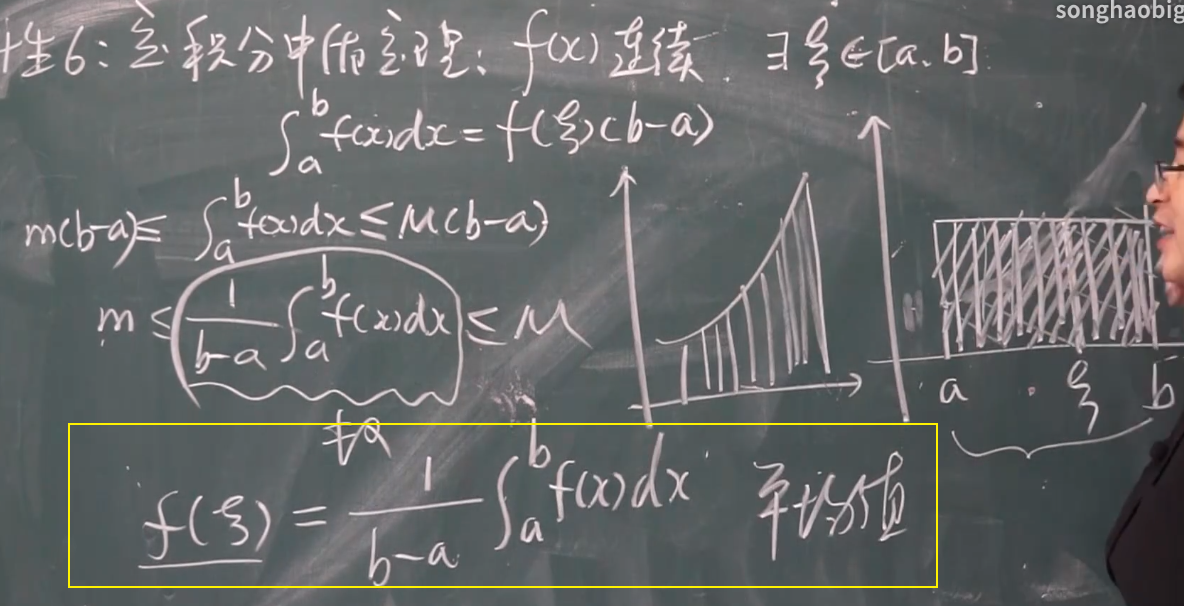 songhaobig
性6: 定积分中值定理: f(x)连续. ∃ξ∈[a.b].
∫_a^b f(x)dx = f(ξ)(b-a)
m(b-a) ≤ ∫_a^b f(x)dx ≤ M(b-a)
m ≤ \frac{1}{b-a} ∫_a^b f(x)dx ≤ M
a ξ b
f(ξ) = \frac{1}{b-a} ∫_a^b f(x)dx 平均值